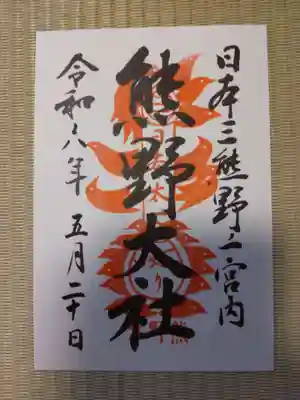 日本三熊野ノ宮内
熊野大社
令和八年 五月二十日